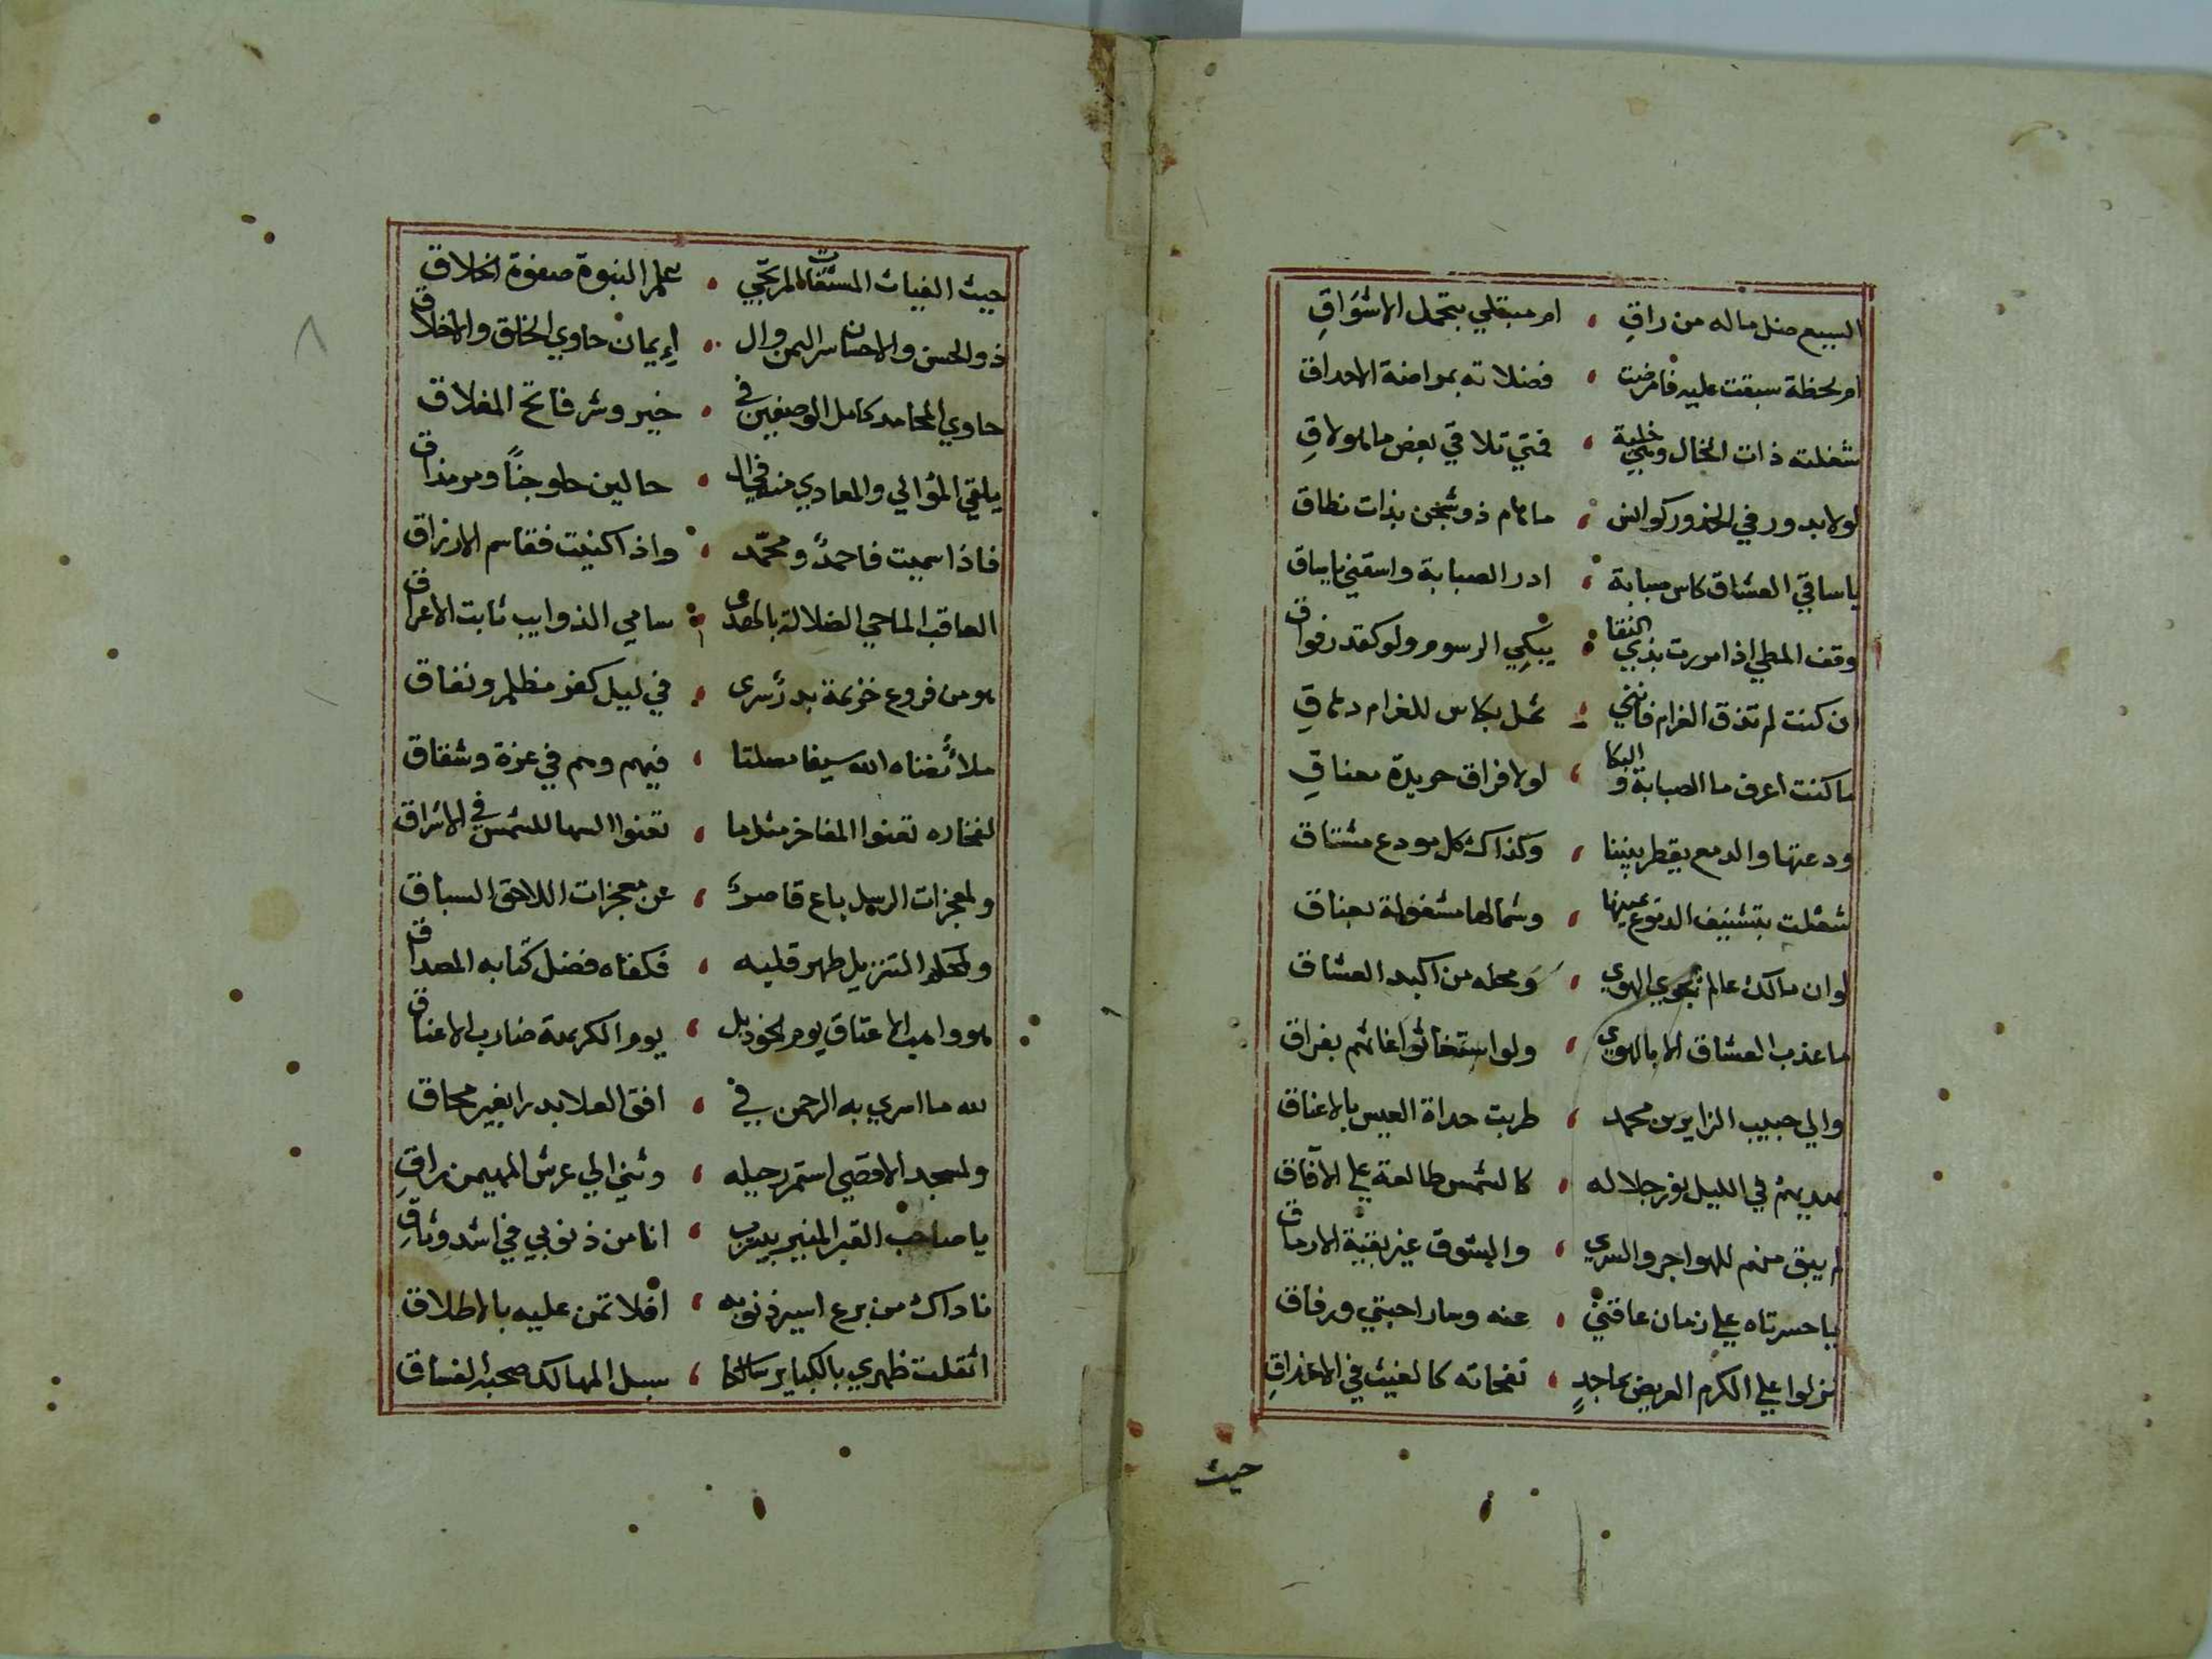 السبع منل ماله من راقِ ، ام مبتلي بتحمل الاشوَاقِ
ام لحظة سبقت عليه فامرضت ، فضلاته بمراضة الاحداق
شغلته ذات الخال وهي خلية ، فمتي تلاقي بعض ما هو لاقِ
لولا بدور في الخدور كوانس ، ما هام ذو شجن بذات نطاق
يا ساقي العشاق كاس صبابة ، ادر الصبابة واسقني يا ساق
وقف المطي اذا مررت بذي النقا ، يبكي الرسوم ولو كقدر فواق
ان كنت لم تذق الغرام فانني ، ثمل بكاس للغرام دهاقِ
ما كنت اعرف ما الصبابة والبكا ، لولا فراق خريدة معناقِ
ودعتها والدمع يقطر بيننا ، وكذاك كل مودع مشتاق
شغلت بتنشيف الدموع عينها ، وشمالها مشغولة بعناق
لو ان مالك عالم بجوي الهوي ، ومحله من اكبد العشاق
ما عذب العشاق الا بالهوي ، ولو استغاثوا غاثهم بفراق
والي حبيب الزايرين محمد ، طربت حداة العيس بالاعناق
يهديهم في الليل نور جلاله ، كالشمس طالعة علي الآفاق
لم يبق منهم للهواجر والسري ، والشوق غير بقية الارماق
يا حسرتاه علي زمان عاقني ، عنه وسار احبتي ورفاق
نزلوا علي الكرم العريض بماجدٍ ، نفحاته كالغيث في الاغداقِ
حيث
حيث الغياث المستغاث المرتجي ، علم النبوة صفوة الخلاق
ذو الحسن والاحسان سر اليمن وال ، إيمان حاوي الخلق والاخلاق
حاوي المحامد كامل الوصفين في ، خير وشر فاتح المغلاق
يلقي الموالي والمعادي منه في ال ، حالين حلو جنًا ومر مذاق
فاذا سميت فاحمدٌ ومحمّد ، واذا كنيت فقاسم الارزاق
العاقب الماحي الضلالة بالهدى ، سامي الذوايب ثابت الاعراق
هو من فروع خزيمة بدر سرى ، في ليل كفر مظلم ونفاق
ملأ ثغناه الله سيفا مصلتا ، فيهم وهم في عزة وشقاق
لفخاره تعنوا المفاخر مثل ما ، تعنوا السها للشمس في الاشراق
ولمعجزات الرسل باع قاصر ، عن معجزات اللاحق السباق
ولمحكم التنزيل طهر قلبه ، فكفاه فضل كتابه المصداق
هو واهب الاعتاق يوم الجود بل ، يوم الكريهة ضارب الاعناق
لله ما اسري به الرحمن في ، افق العلا بدرا بغير محاق
ولمسجد الاقصي استمر رحيله ، وثني الي عرش المهيمن راقِ
يا صاحب القبر المنير بيثرب ، انا من ذنوبي في اشد وثاقِ
ناداك من برع اسير ذنوبه ، افلا تمن عليه بالاطلاق
اثقلت ظهري بالكباير سالكا ، سبل المهالك صحبة الفساق
٨